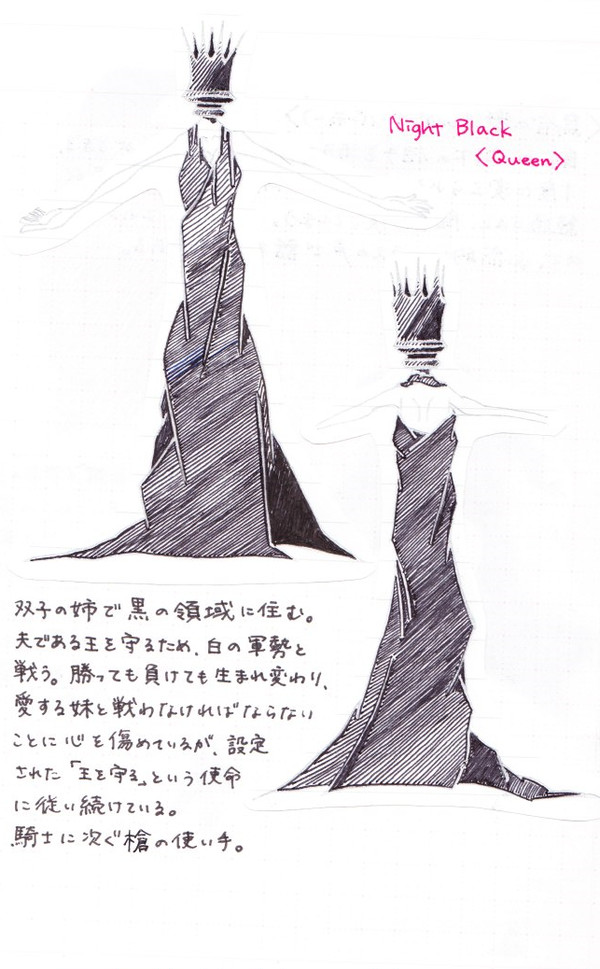 Night Black
<Queen>
双子の姉で黒の領域に住む。
夫である王を守るため、白の軍勢と
戦う。勝っても負けても生まれ変わり、
愛する妹と戦わなければならない
ことに心を傷めているが、設定
された「王を守る」という使命
に従い続けている。
騎士に次ぐ槍の使い手。